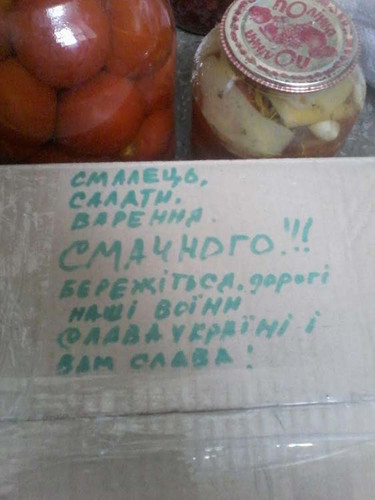 СМАЛЕЦЬ,
САЛАТИ.
ВАРЕННЯ.
СМАЧНОГО.!!!
БЕРЕЖІТЬСЯ, дорогі
НАШІ ВОЇНИ
СЛАВА УКРАЇНІ і
ВАМ СЛАВА!